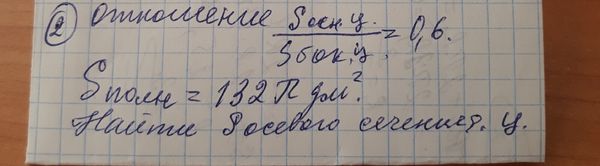 ② отношение Sосн.ц. / Sбок.ц. = 0,6.
Sполн = 132π дм².
Найти Sосевого сечения. ц.